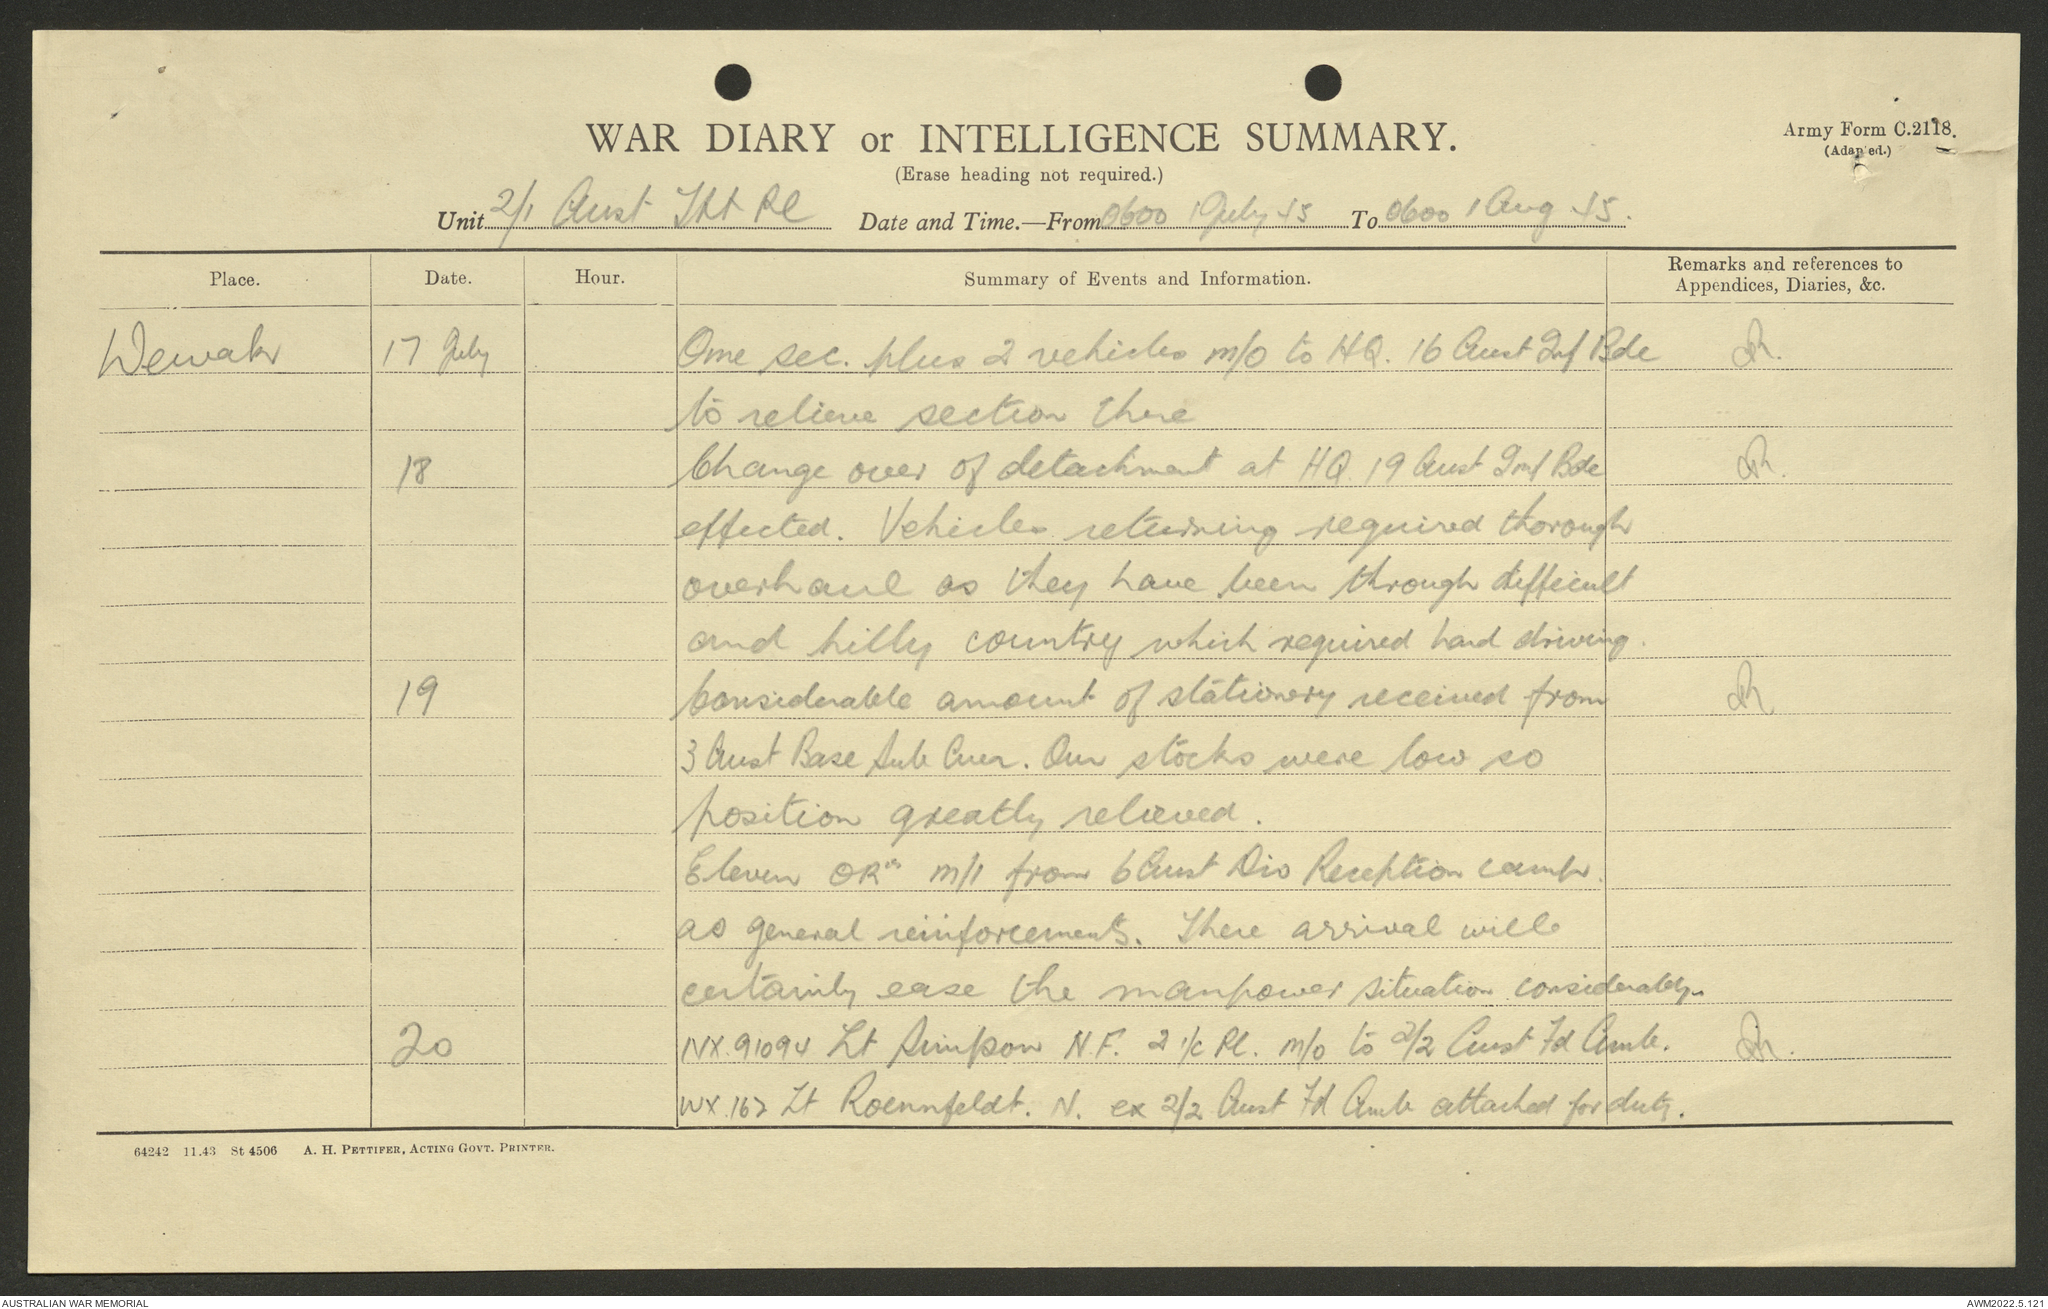 WAR DIARY or INTELLIGENCE SUMMARY.
Army Form C.2118.
(Adapted.)
(Erase heading not required.)
Unit 2/1 Aust Tpt Pl Date and Time.—From 0600 1 July 45 To 0600 1 Aug 45.
Place. Date. Hour. Summary of Events and Information. Remarks and references to
Appendices, Diaries, &c.
Wewak 17 July One sec. plus 2 vehicles m/o to HQ. 16 Aust Inf Bde
to relieve section there
18 Change over of detachment at HQ. 19 Aust Inf Bde
effected. Vehicles returning required thorough
overhaul as they have been through difficult
and hilly country which required hard driving.
19 Considerable amount of stationery received from
3 Aust Base Sub Area. Our stocks were low so
position greatly relieved.
Eleven ORs m/i from 6 Aust Div Reception camp.
as general reinforcements. There arrival will
certainly ease the manpower situation considerably.
20 NX.91094 Lt Simpson N.F. 2 i/c Pl. m/o to 2/2 Aust Fd Amb.
WX.167 Lt Roennfeldt. N. ex 2/2 Aust Fd Amb attached for duty.
64242 11.43 St 4506 A. H. PETTIFER, ACTING GOVT. PRINTER.
AUSTRALIAN WAR MEMORIAL AWM2022.5.121